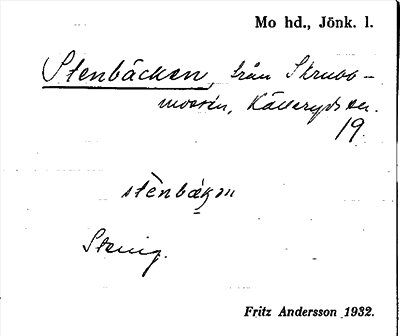 Mo hd., Jönk. l.
Stenbäcken, från Skrubb-
mossen, Källeryds sn.
19.
stènbäkən
Stenig.
Fritz Andersson 1932.